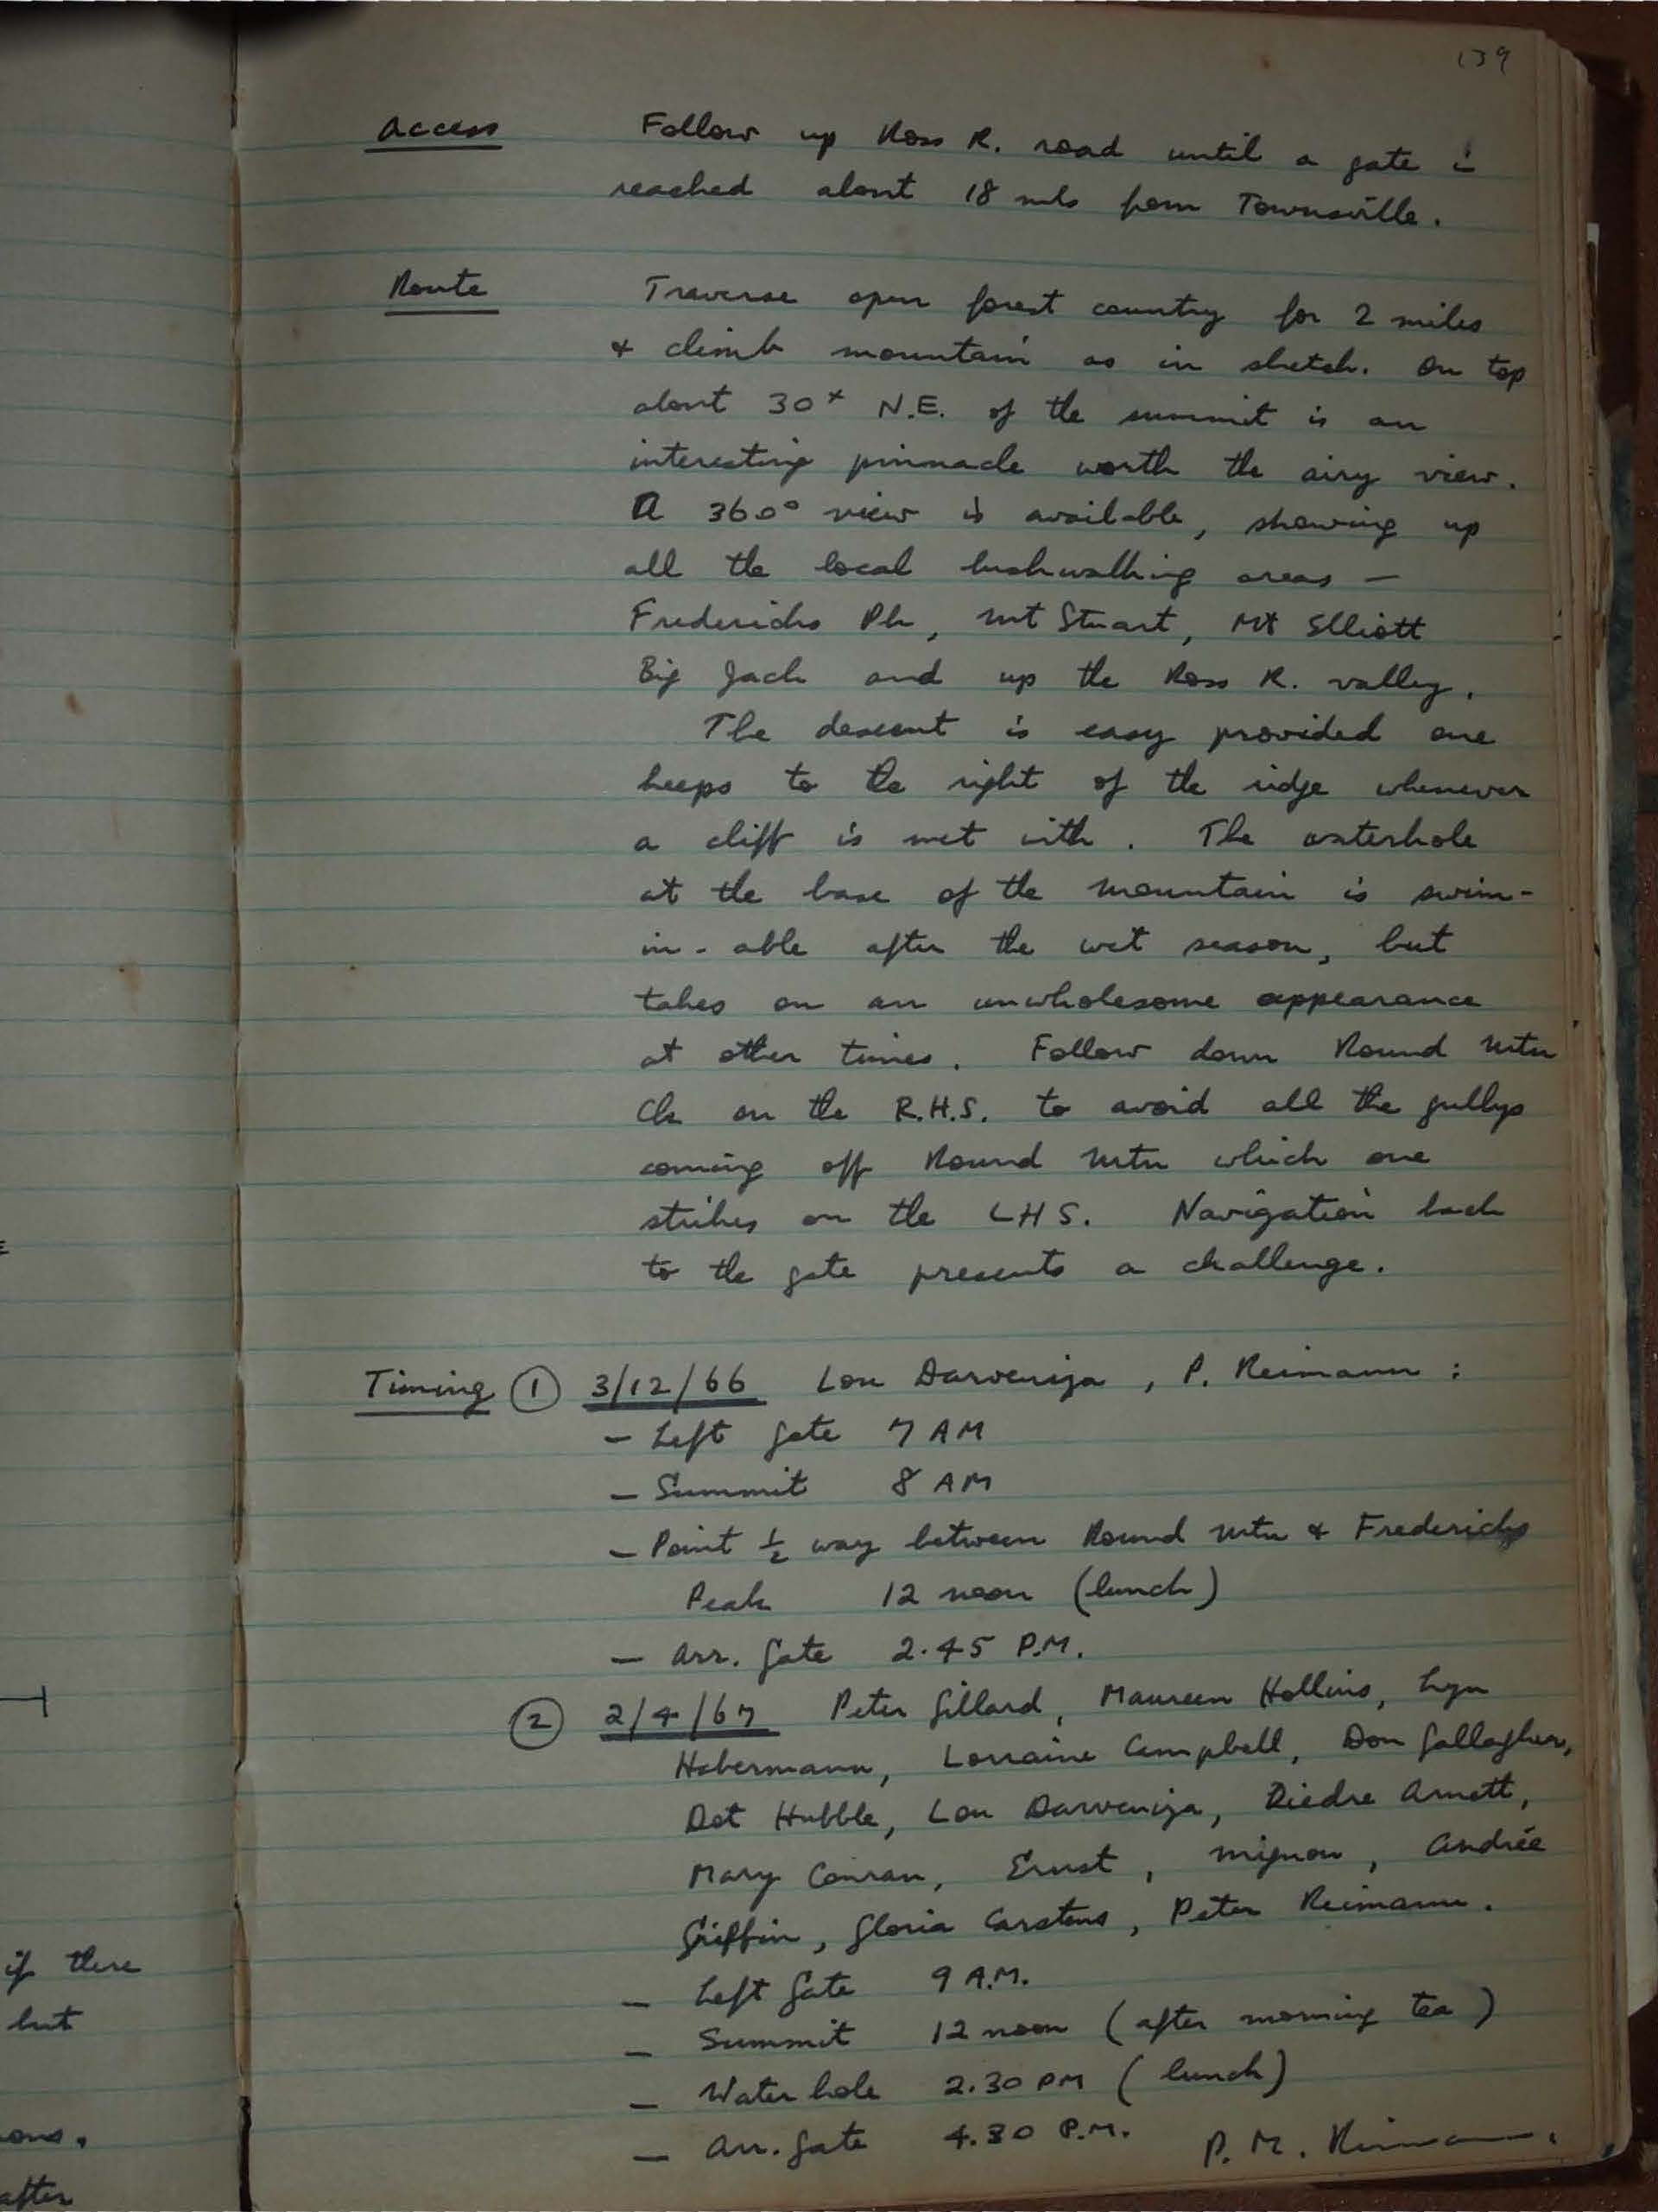 139
Access Follow up Ross R. road until a gate is
reached about 18 mls from Townsville.
Route Traverse open forest country for 2 miles
& climb mountain as in sketch. On top
about 30x N.E. of the summit is an
interesting pinnacle worth the airy view.
A 360° view is available, showing up
all the local bushwalking areas —
Fredericks Pk, Mt Stuart, Mt Elliott
Big Jack and up the Ross R. valley.
The descent is easy provided one
keeps to the right of the ridge whenever
a cliff is met with. The waterhole
at the base of the mountain is swim-
in-able after the wet season, but
takes on an unwholesome appearance
at other times. Follow down Round Mtn
Ck on the R.H.S. to avoid all the gullys
coming off Round Mtn which one
strikes on the LHS. Navigation back
to the gate presents a challenge.
Timing 1 3/12/66 Lou Darveniza, P. Reimann :
— Left gate 7 AM
— Summit 8 AM
— Point ½ way between Round Mtn & Fredericks
Peak 12 noon (lunch)
— Arr. gate 2.45 P.M.
2 2/4/67 Peter Gillard, Maureen Hollins, Lyn
Habermann, Lorraine Campbell, Don Gallagher,
Dot Hubble, Lou Darveniza, Diedre Arnett,
Mary Conran, Ernst, Mignon, Andrée
Griffin, Gloria Carstens, Peter Reimann.
— Left gate 9 A.M.
— Summit 12 noon (after morning tea)
— Water hole 2.30 PM (lunch)
— Arr. gate 4.30 P.M. P. M. Reimann.
if there
but
ons.
after